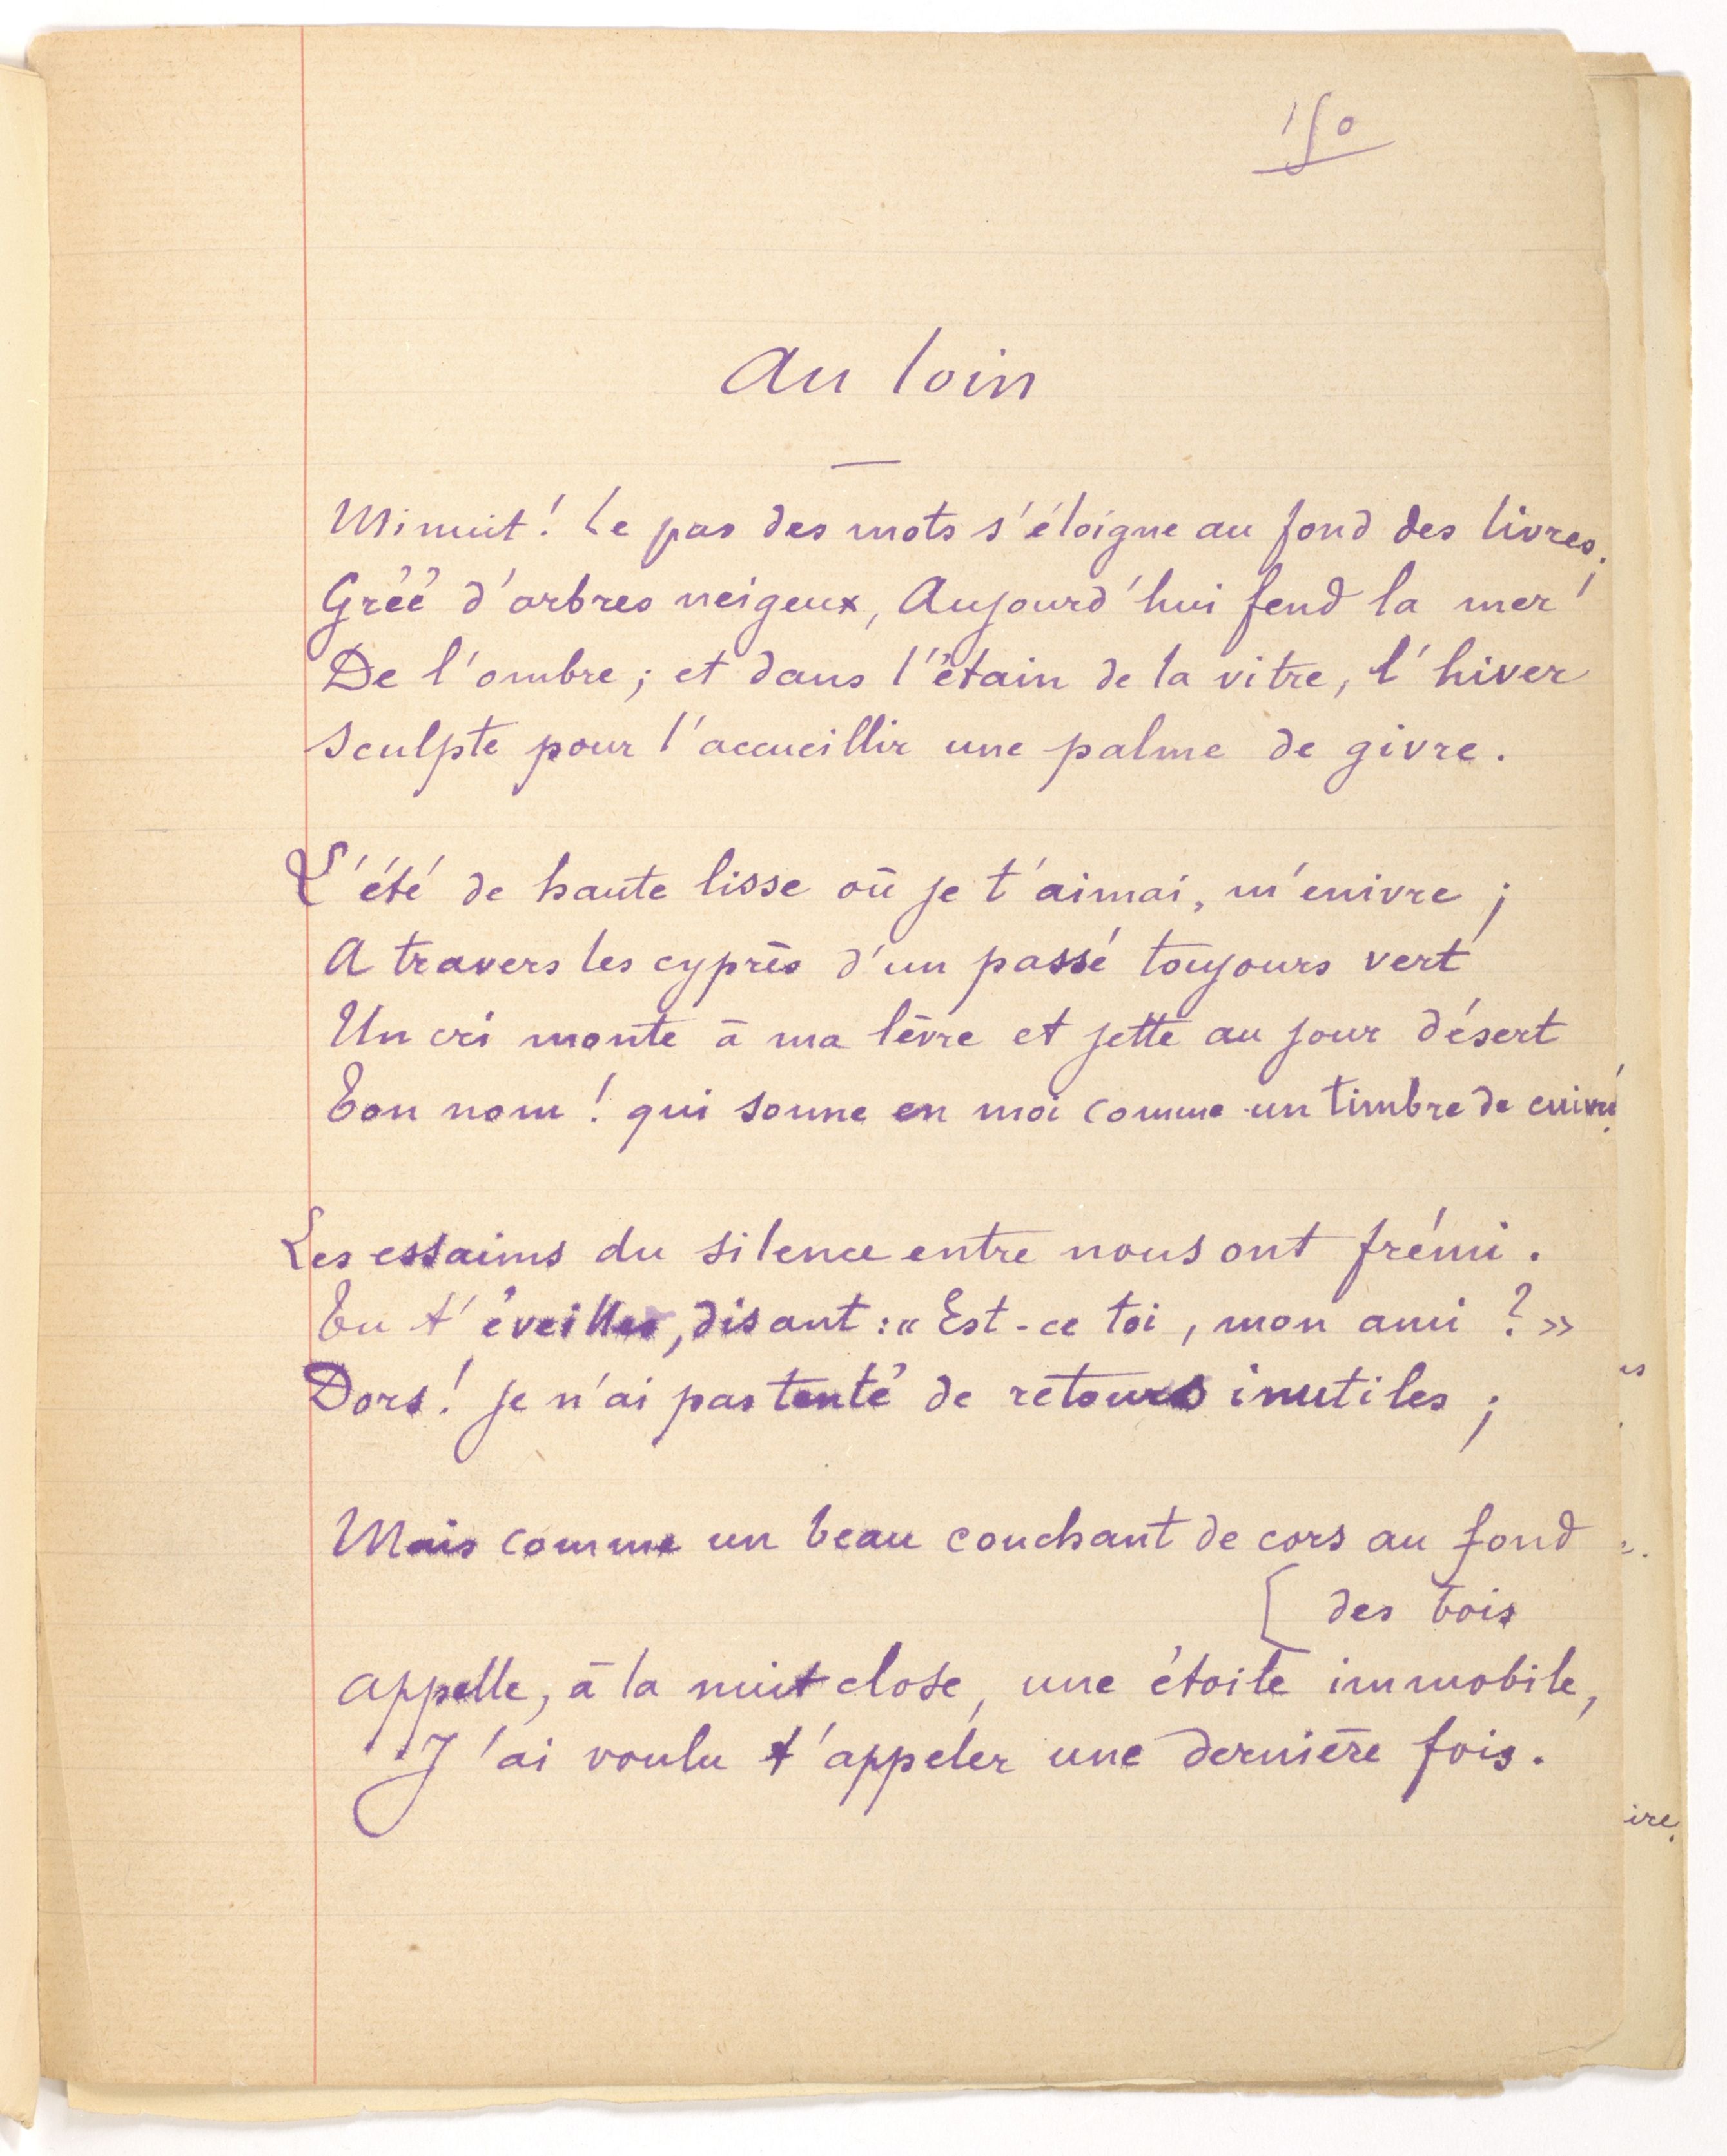 150
Au loin
Minuit! Le pas des mots s'éloigne au fond des livres.
Gréé d'arbres neigeux, Aujourd'hui fend la mer
De l'ombre; et dans l'étain de la vitre, l'hiver
Sculpte pour l'accueillir une palme de givre.
L'été de haute lisse où je t'aimai, m'enivre;
A travers les cyprès d'un passé toujours vert
Un cri monte à ma lèvre et jette au jour désert
Ton nom! qui sonne en moi comme un timbre de cuivre!
Les essaims du silence entre nous ont frémi.
Tu t'éveilles, disant: « Est-ce toi, mon ami? »
Dors! je n'ai pas tenté de retours inutiles;
Mais comme un beau couchant de cors au fond
[ des bois
appelle, à la nuit close, une étoile immobile,
J'ai voulu t'appeler une dernière fois.
ire.